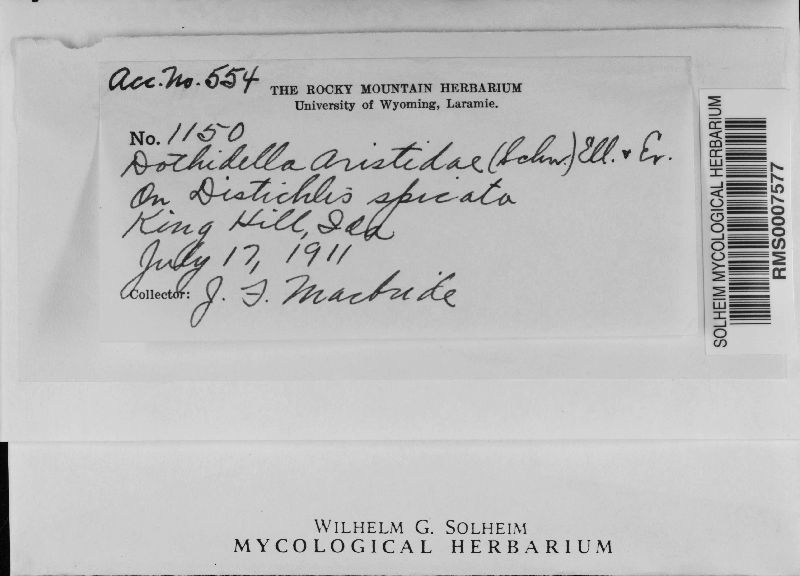 Acc. No. 554
THE ROCKY MOUNTAIN HERBARIUM
University of Wyoming, Laramie.
No. 1150
Dothidella aristidae (Schw.) Ell. & Ev.
On Distichlis spicata
King Hill, Ida
July 17, 1911
Collector: J. F. Macbride
SOLHEIM MYCOLOGICAL HERBARIUM
RMS0007577
WILHELM G. SOLHEIM
MYCOLOGICAL HERBARIUM